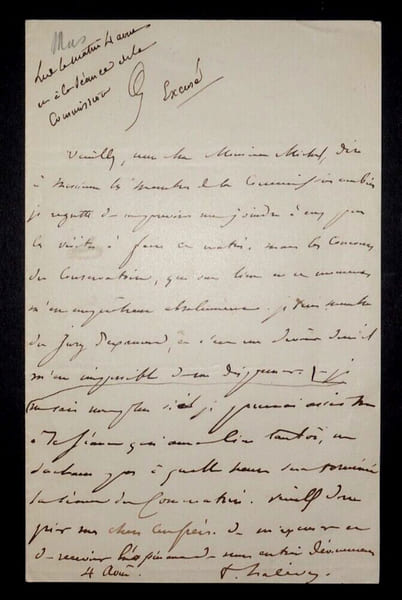 Mus
Lu le matin 4 août
à la séance de la
Commission
Excusé
Veuillez, mon cher Monsieur Michel, dire
à Messieurs les membres de la Commission combien
je regrette de ne pouvoir me joindre à eux pour
la visite à faire ce matin. mais les Concours
du Conservatoire, qui ont lieu en ce moment
m'en empêchent absolument. je suis membre
du Jury d'examen, et c'est un devoir dont il
m'est impossible de me dispenser.
Je ne sais non plus si je pourrai assister
à la Séance qui aura lieu tantôt, ne
sachant pas à quelle heure sera terminée
la séance du Conservatoire. Veuillez donc
prier mes chers confrères de m'excuser et
de recevoir l'expression de mon entier dévouement
4 Août. F. halévy